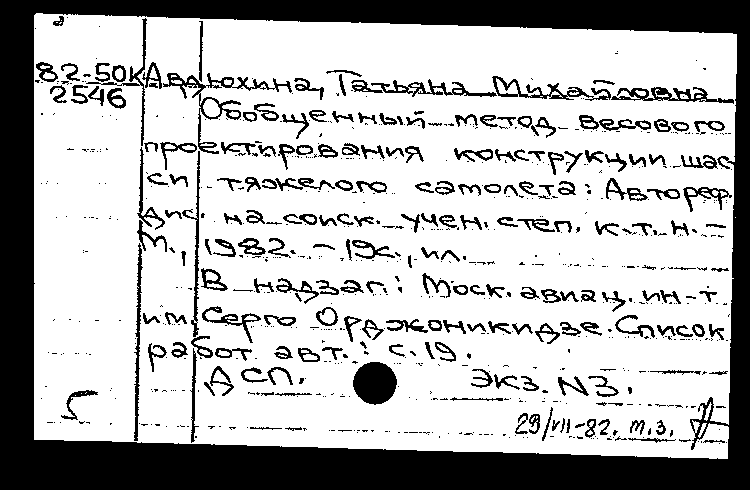 82-50К Авдюхина, Татьяна Михайловна
2546
Обобщенный метод весового
проектирования конструкции шас-
си тяжелого самолета: Автореф.
дис. на соиск. учен. степ. к.т.н. –
М., 1982. – 19с., ил.
В надзаг.: Моск. авиац. ин-т
им. Серго Орджоникидзе. Список
работ авт.: с. 19.
ДСП. экз. N3.
5
29/VII-82. т.з.